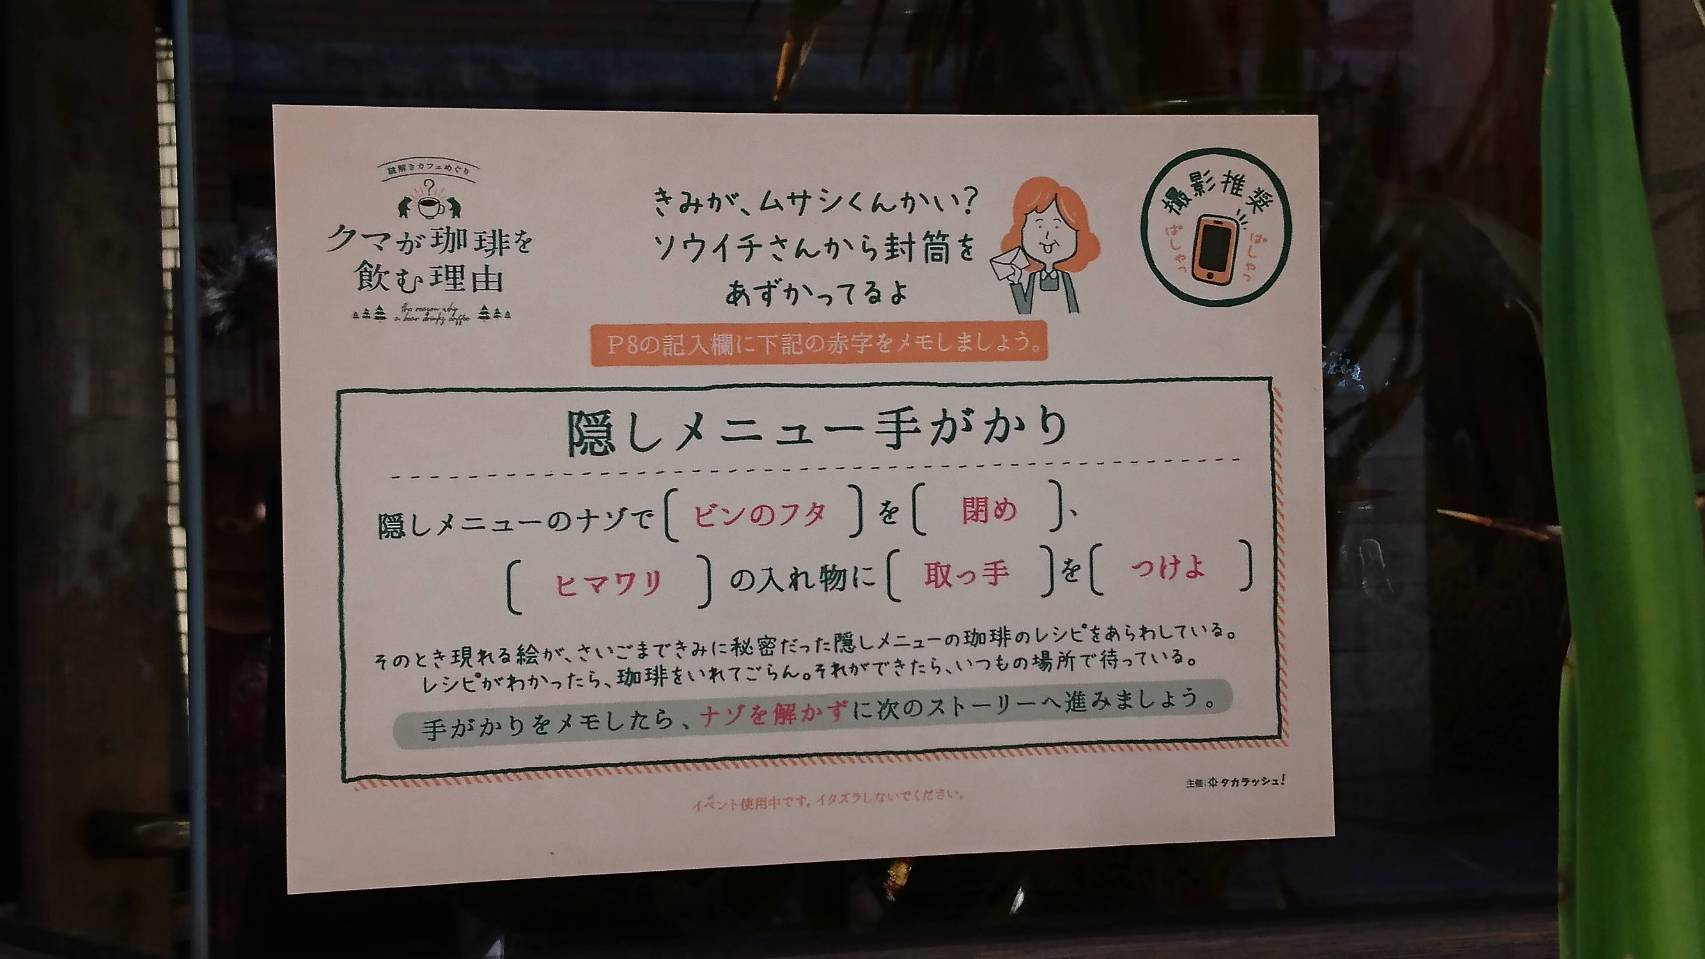 謎解きカフェめぐり
クマが珈琲を
飲む理由
the reason why
a bear drinks coffee
きみが、ムサシくんかい?
ソウイチさんから封筒を
あずかってるよ
撮影推奨
ぱしゃっ
ぱしゃっ
P8の記入欄に下記の赤字をメモしましょう。
隠しメニュー手がかり
隠しメニューのナゾで〔ビンのフタ〕を〔閉め〕、
〔ヒマワリ〕の入れ物に〔取っ手〕を〔つけよ〕
そのとき現れる絵が、さいごまできみに秘密だった隠しメニューの珈琲のレシピをあらわしている。
レシピがわかったら、珈琲をいれてごらん。それができたら、いつもの場所で待っている。
手がかりをメモしたら、ナゾを解かずに次のストーリーへ進みましょう。
主催:タカラッシュ!
イベント使用中です。イタズラしないでください。